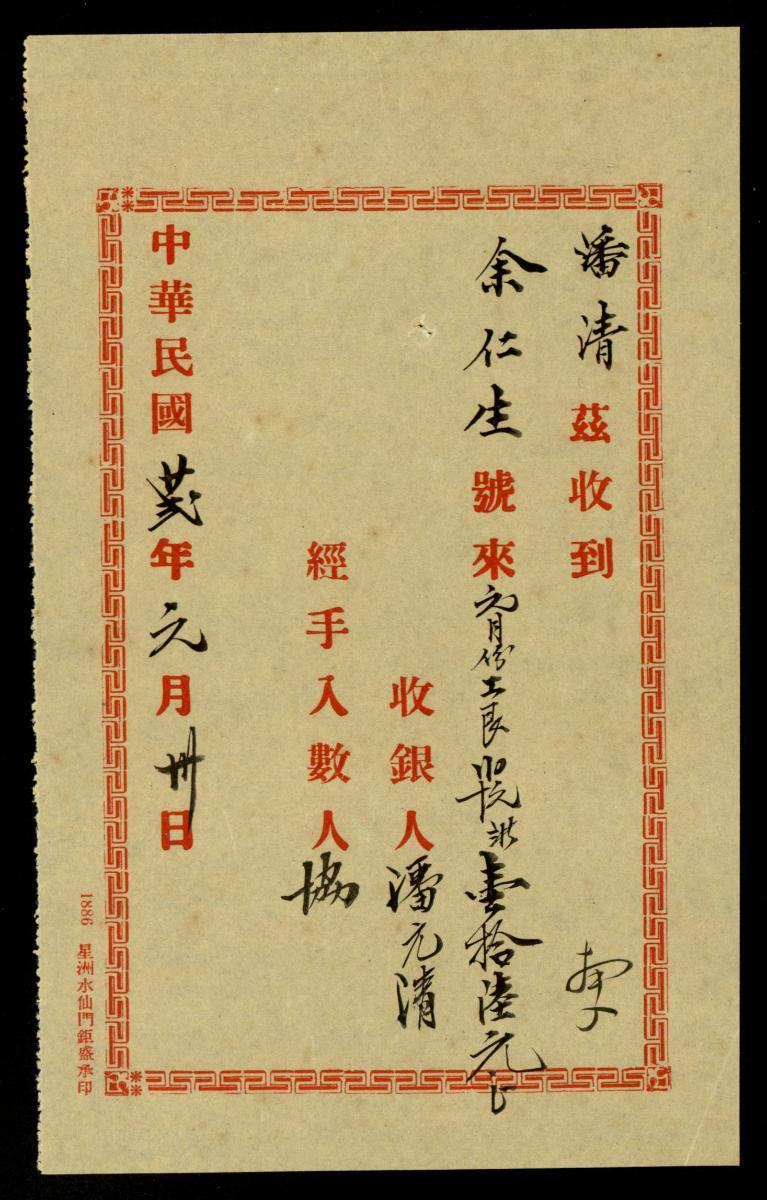 潘清茲收到
余仁生號來元月份工艮壹拾陸元
收銀人潘元清
經手入數人協
中華民國廿弍年元月卅日
1886 星洲水仙門鉅盛承印